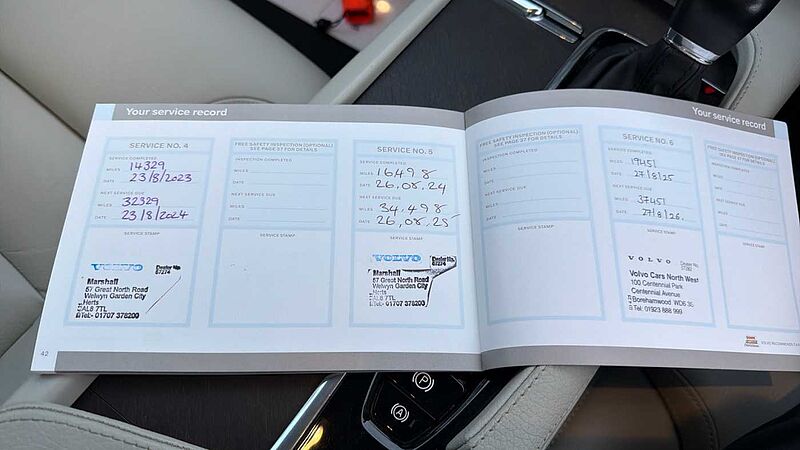 Your service record
SERVICE NO. 4
SERVICE COMPLETED
MILES 14329
DATE 23/8/2023
NEXT SERVICE DUE
MILES 32329
DATE 23/8/2024
SERVICE STAMP
VOLVO
Dealer No.
57274
Marshall
57 Great North Road
Welwyn Garden City
Herts
AL8 7TL
Tel:- 01707 378200
FREE SAFETY INSPECTION (OPTIONAL)
SEE PAGE 37 FOR DETAILS
INSPECTION COMPLETED
MILES
DATE
NEXT SERVICE DUE
MILES
DATE
SERVICE STAMP
SERVICE NO. 5
SERVICE COMPLETED
MILES 16498
DATE 26,08,24
NEXT SERVICE DUE
MILES 34,498
DATE 26,08,25
SERVICE STAMP
VOLVO
Dealer No.
57274
Marshall
57 Great North Road
Welwyn Garden City
Herts
AL8 7TL
Tel:- 01707 378200
42
Your service record
FREE SAFETY INSPECTION (OPTIONAL)
SEE PAGE 37 FOR DETAILS
INSPECTION COMPLETED
MILES
DATE
NEXT SERVICE DUE
MILES
DATE
SERVICE STAMP
SERVICE NO. 6
SERVICE COMPLETED
MILES 19451
DATE 27/8/25
NEXT SERVICE DUE
MILES 37451
DATE 27/8/26.
SERVICE STAMP
VOLVO
Dealer No.
Volvo Cars North West
100 Centennial Park
Centennial Avenue
Borehamwood WD6 3S
Tel: 01923 888 999
FREE SAFETY INSPECTION (OPTIONAL)
SEE PAGE 37 FOR DETAILS
INSPECTION COMPLETED
MILES
DATE
NEXT SERVICE DUE
MILES
DATE
SERVICE STAMP
VOLVO RECOMMENDS CAS
P
A